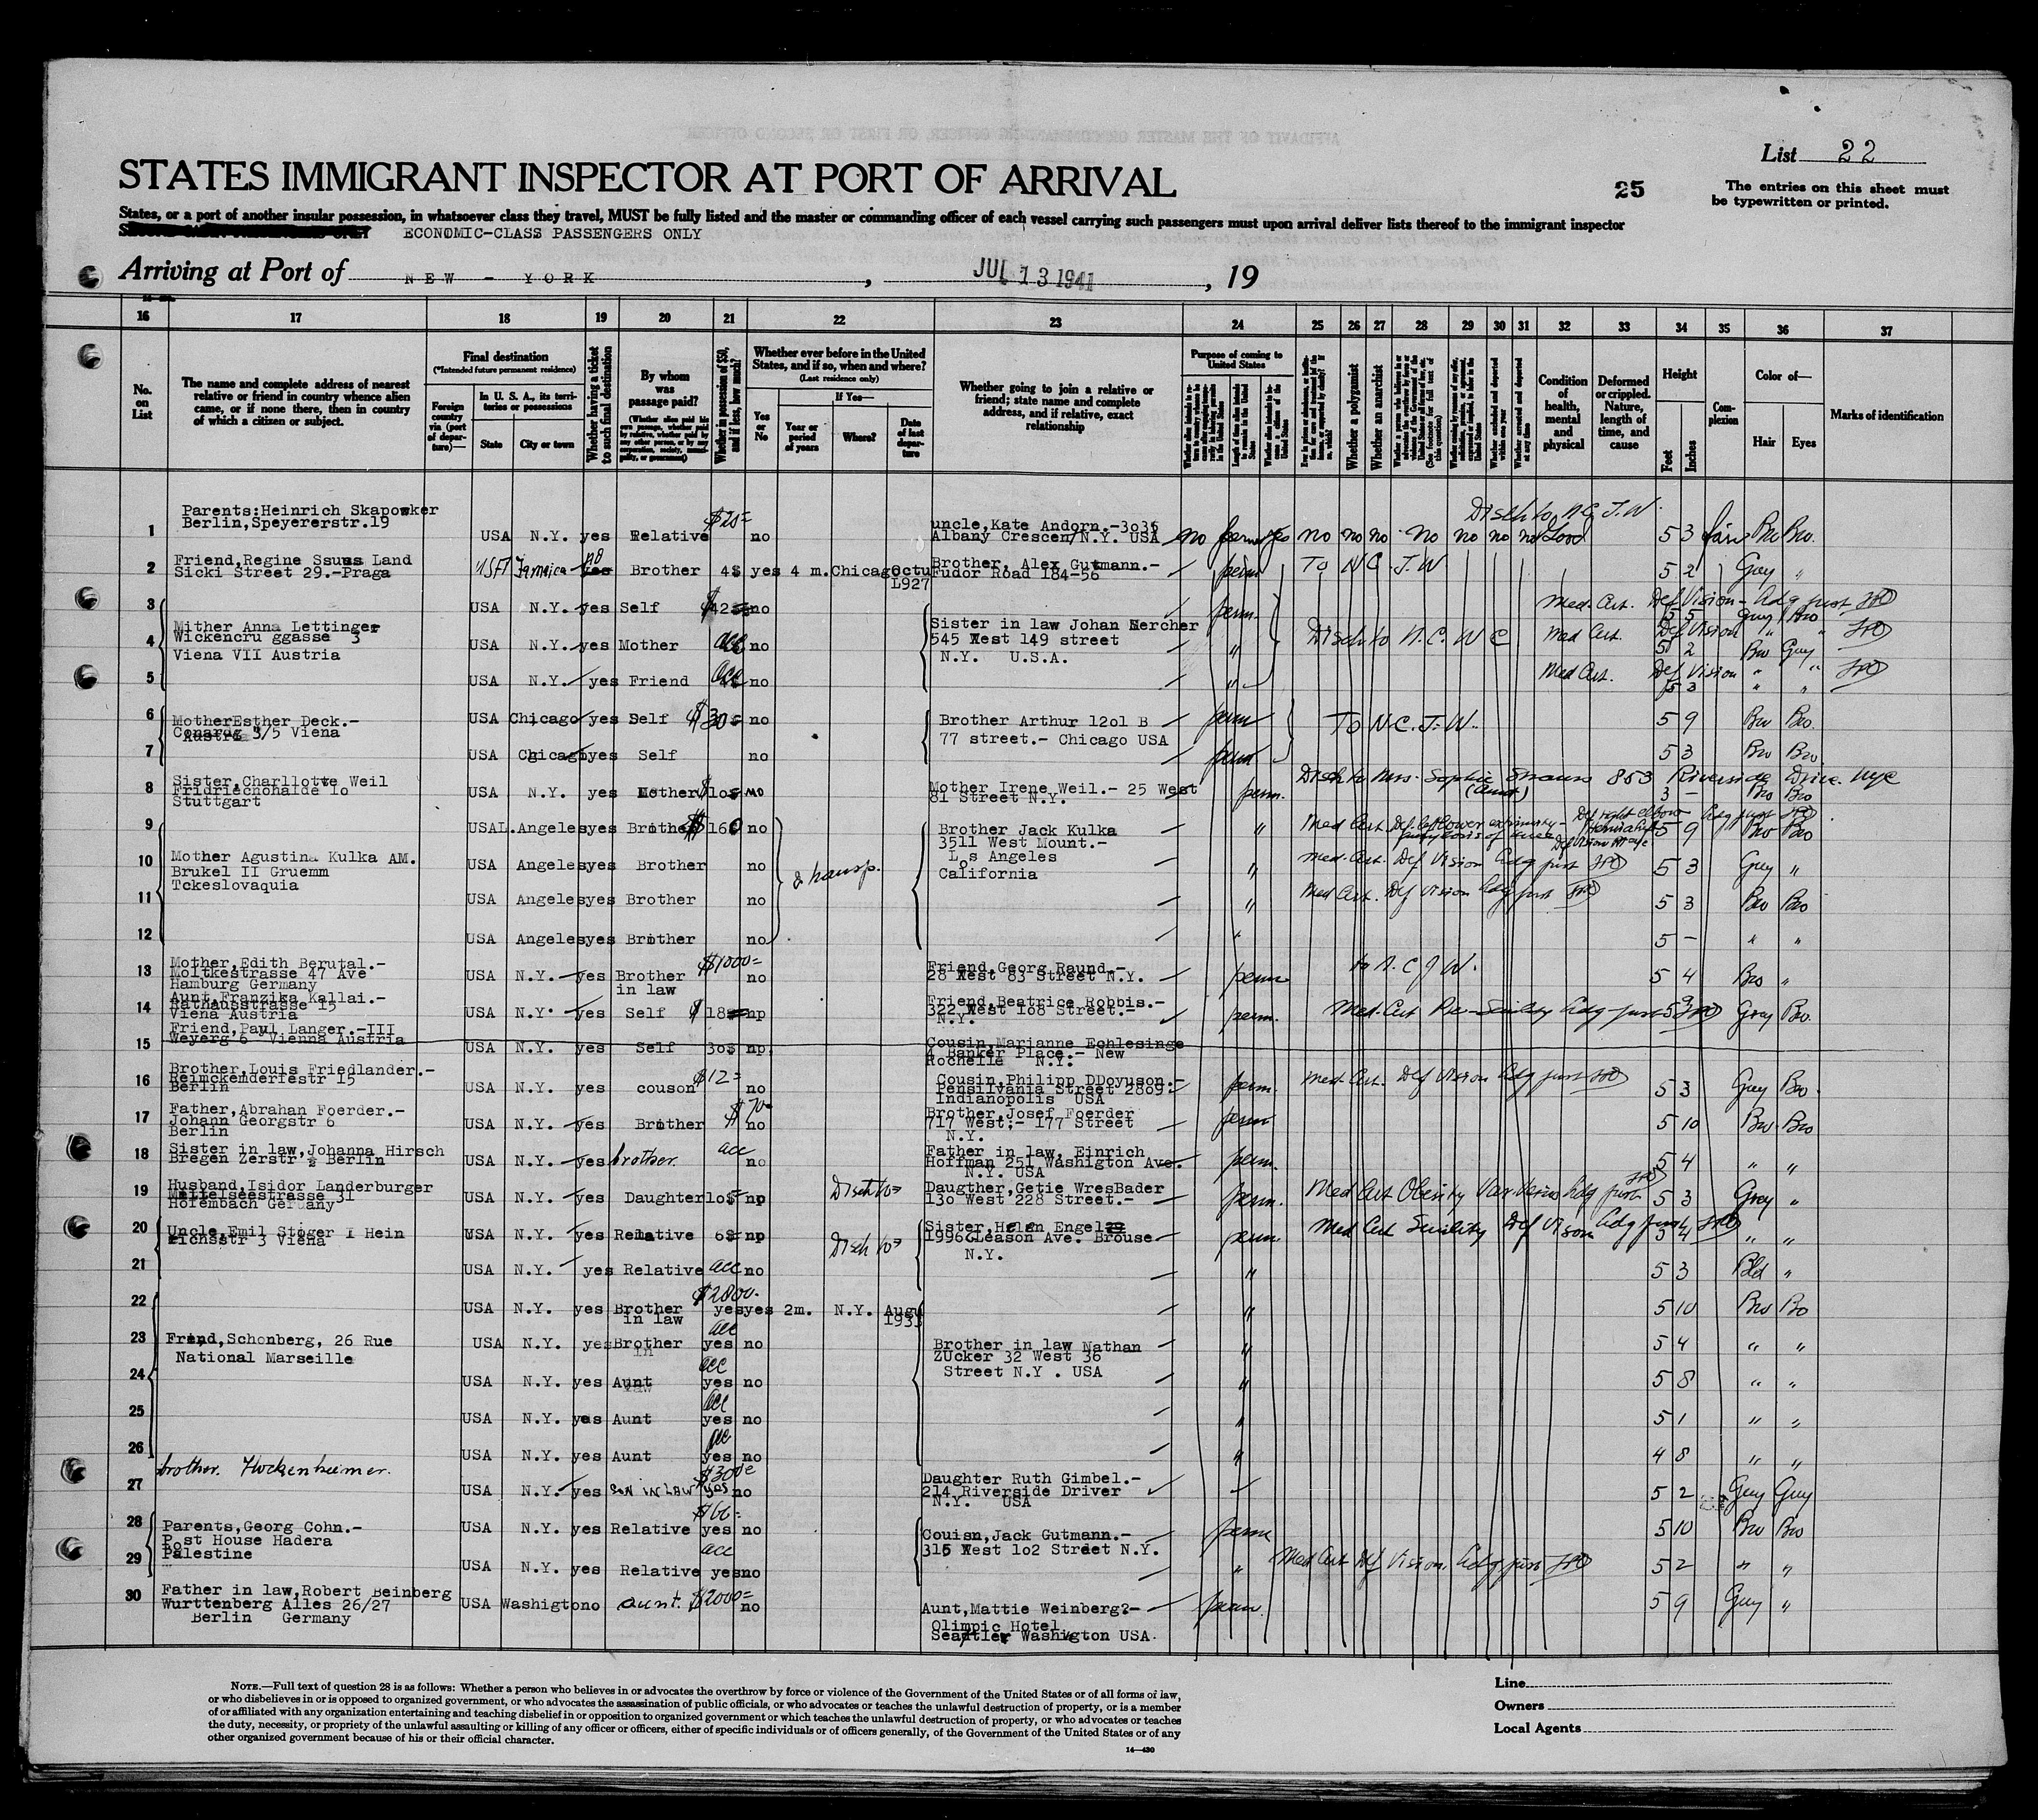 List 22
STATES IMMIGRANT INSPECTOR AT PORT OF ARRIVAL
25
The entries on this sheet must
be typewritten or printed.
States, or a port of another insular possession, in whatsoever class they travel, MUST be fully listed and the master or commanding officer of each vessel carrying such passengers must upon arrival deliver lists thereof to the immigrant inspector
ECONOMIC-CLASS PASSENGERS ONLY
Arriving at Port of NEW - YORK, JUL 13 1941, 19
16 17 18 19 20 21 22 23 24 25 26 27 28 29 30 31 32 33 34 35 36 37
No. on List
The name and complete address of nearest relative or friend in country whence alien came, or if none there, then in country of which a citizen or subject.
Final destination
(*Intended future permanent residence)
Foreign country via (port of departure)—
In U. S. A., its territories or possessions
State
City or town
Whether having a ticket to such final destination
By whom was passage paid?
Whether in possession of $50, and if less, how much?
Whether ever before in the United States, and if so, when and where?
(Last residence only)
Yes or No
If Yes—
Year or period of years
Where?
Date of last departure
Whether going to join a relative or friend; state name and complete address, and if relative, exact relationship
Purpose of coming to United States
Whether a polygamist
Whether an anarchist
Condition of health, mental and physical
Deformed or crippled. Nature, length of time, and cause
Height
Feet
Inches
Complexion
Color of—
Hair
Eyes
Marks of identification
Disch to N.C.J.W.
1 Parents:Heinrich Skapowker
Berlin,Speyererstr.19
USA N.Y. yes Relative no
uncle,Kate Andorn.-3o36
Albany Crescen/N.Y. USA
no perm yes no no no no no no no Good 5 3 fair Bro Bro.
2 Friend,Regine Ssuss Land
Sicki Street 29.-Praga
Jamaica no Brother 4$ yes 4 m. Chicago Octu
1927
Brother, Alex Gutmann.-
Fudor Road 184-56
perm To N.C.J.W 5 2 Grey "
3 USA N.Y. yes Self no
perm. Med. Cert. Def Vision 5 5 Grey Bro
4 Mither Anna Lettinger
Wickencru ggasse 3
Viena VII Austria
USA N.Y. yes Mother acc no
Sister in law Johan Hercher
545 West 149 street
N.Y. U.S.A.
" Disch to N.C.W.C Med Cert. Def Vision 5 2 Bro Grey
5 USA N.Y. yes Friend acc no
" Med Cert. Def Vision 5 3 " "
6 MotherEsther Deck.-
3/5 Viena
USA Chicago yes Self $30 no
Brother Arthur 12o1 B
77 street.- Chicago USA
perm To N.C.J.W. 5 9 Bro Bro.
7 USA Chicago yes Self no perm 5 3 Bro Bro.
8 Sister,Charllotte Weil
Fridrichchalde 1o
Stuttgart
USA N.Y. yes Mother $10 no
Mother Irene Weil.- 25 West
81 Street N.Y.
perm. Disch to Mrs. Sophie Strauss 853 Riverside Drive. nyc
(Aunt) 3 - Bro Bro
9 USA L.Angeles yes Brother $16 no
" Med Cert. Def left lower extremity 5 9 Bro Bro
10 Mother Agustina Kulka AM.
Brukel II Gruemm
Tckeslovaquia
USA Angeles yes Brother no
Brother Jack Kulka
3511 West Mount.-
Los Angeles
California
" Med. Cert. Def Vision 5 3 Grey "
11 USA Angeles yes Brother no
" Med Cert. Def Vision 5 3 Bro Bro
12 USA Angeles yes Brother no " 5 - " "
13 Mother,Edith Berutal.-
Moltkestrasse 47 Ave
Hamburg Germany
USA N.Y. yes Brother in law $1000= no
Friend,Georg Raund.-
28 West 83 Street N.Y.
perm to N.C.J.W. 5 4 Bro "
14 Aunt,Franzika Kallai.-
Rathausstrasse 15
Viena Austria
USA N.Y. yes Self $18 np
Friend,Beatrice Robbis.-
322 West 1o8 Street.-
N.Y.
perm. Med. Cert Grey Bro.
15 Friend,Paul Langer.-III
Weyerg 6 Vienna Austria
USA N.Y. yes Self 3o$ np.
Cousin,Marianne Eohlesinge
4 Banker Place.- New
Rochelle N.Y.
16 Brother,Louis Friedlander.-
Berlin
USA N.Y. yes couson $12= no
Cousin,Philipp DDoyuson.-
Pensilvania Street 2869.
Indianopolis USA
perm. Med. Cert. Def Vision 5 3 Grey Bro.
17 Father,Abrahan Foerder.-
Johann Georgstr 6
Berlin
USA N.Y. yes Brother $70 no
Brother,Josef Foerder
717 West;- 177 Street
N.Y.
perm 5 10 Bro Bro
18 Sister in law,Johanna Hirsch
Bregen Zerstr 2 Berlin
USA N.Y. yes brother. acc no
Father in law, Einrich
Hoffman 251 Washigton Ave.
N.Y. USA
perm. 5 4 " "
19 Husband,Isidor Landerburger
Mittelseestrasse 31
Hofembach Germany
USA N.Y. yes Daughter 1o$ np Disch to
Daugther,Getie WresBader
13o West 228 Street.-
perm. Med Cert Obesity 5 3 Grey "
20 Uncle,Emil Stoger I Hein
richsstr 3 Viena
USA N.Y. yes Relative 6$ np Disch to
Sister,Helen Engel
1996Gleason Ave. Brouse
N.Y.
perm. Med Cert Senility Def Vision 5 4 " "
21 USA N.Y. yes Relative acc no " 5 3 Bld "
22 USA N.Y. yes Brother in law $2800- yes yes 2m. N.Y. Augu
1933
" 5 10 Bro Bo
23 Friend,Schonberg, 26 Rue
National Marseille
USA N.Y. yes Brother in law acc yes no
Brother in law Nathan
Zucker 32 West 36
Street N.Y . USA
" 5 4 " "
24 USA N.Y. yes Aunt acc yes no " 5 8 " "
25 USA N.Y. yes Aunt acc yes no " 5 1 " "
26 USA N.Y. yes Aunt acc yes no " 4 8 " "
27 brother. Hockenheimer.
USA N.Y. yes son in law yes no
Daughter Ruth Gimbel.-
214 Riverside Driver
N.Y. USA
5 2 Grey Grey
28 Parents,Georg Cohn.-
Post House Hadera
Palestine
USA N.Y. yes Relative yes no
Couisn,Jack Gutmann.-
315 West 1o2 Street N.Y.
perm 5 10 Bro Bro
29 USA N.Y. yes Relative acc yes no
" Med Cert Def Vision. 5 2 " "
30 Father in law,Robert Beinberg
Wurttenberg Alles 26/27
Berlin Germany
USA Washigton o aunt. $2000= no
Aunt,Mattie Weinberg?-
Olimpic Hotel
Seattle Washigton USA.
perm. 5 9 Grey "
NOTE.—Full text of question 28 is as follows: Whether a person who believes in or advocates the overthrow by force or violence of the Government of the United States or of all forms of law,
or who disbelieves in or is opposed to organized government, or who advocates the assassination of public officials, or who advocates or teaches the unlawful destruction of property, or is a member
of or affiliated with any organization entertaining and teaching disbelief in or opposition to organized government or which teaches the unlawful destruction of property, or who advocates or teaches
the duty, necessity, or propriety of the unlawful assaulting or killing of any officer or officers, either of specific individuals or of officers generally, of the Government of the United States or of any
other organized government because of his or their official character.
14—430
Line
Owners
Local Agents